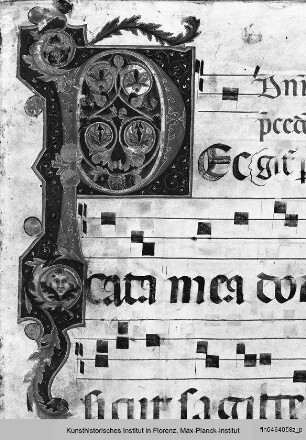 P
EC
cata mea do
sicut sagitte
Kunsthistorisches Institut in Florenz, Max-Planck-Institut fln0464058z_p